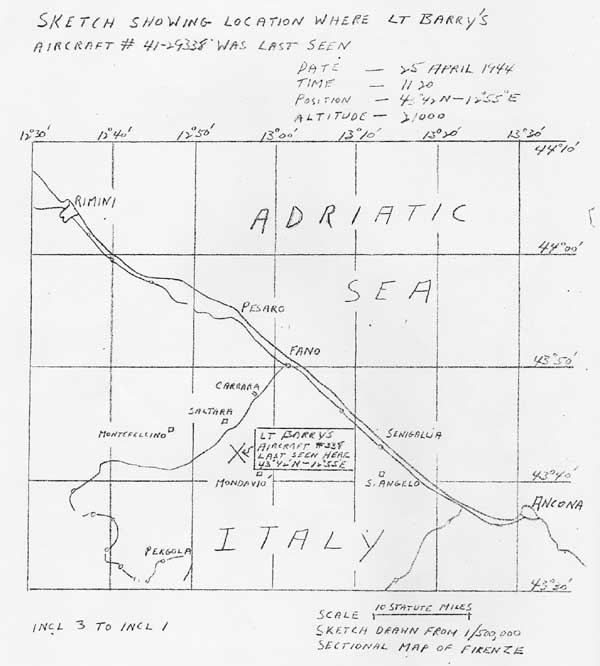 SKETCH SHOWING LOCATION WHERE LT BARRY'S
AIRCRAFT # 41-29338 WAS LAST SEEN
DATE — 25 APRIL 1944
TIME — 1120
POSITION — 43°42'N—12°55'E
ALTITUDE — 21000
12°30' 12°40' 12°50' 13°00' 13°10' 13°20' 13°30'
44°10'
RIMINI
ADRIATIC
44°00'
SEA
PESARO
FANO
43°50'
CARRARA
SALTARA
MONTEFELCINO
LT BARRY'S
AIRCRAFT #338
LAST SEEN HERE
43°42'N—12°55'E
SENIGALLIA
43°40'
MONDAVIO
S. ANGELO
ANCONA
ITALY
PERGOLA
43°30'
INCL 3 TO INCL 1
SCALE 10 STATUTE MILES
SKETCH DRAWN FROM 1/500,000
SECTIONAL MAP OF FIRENZE